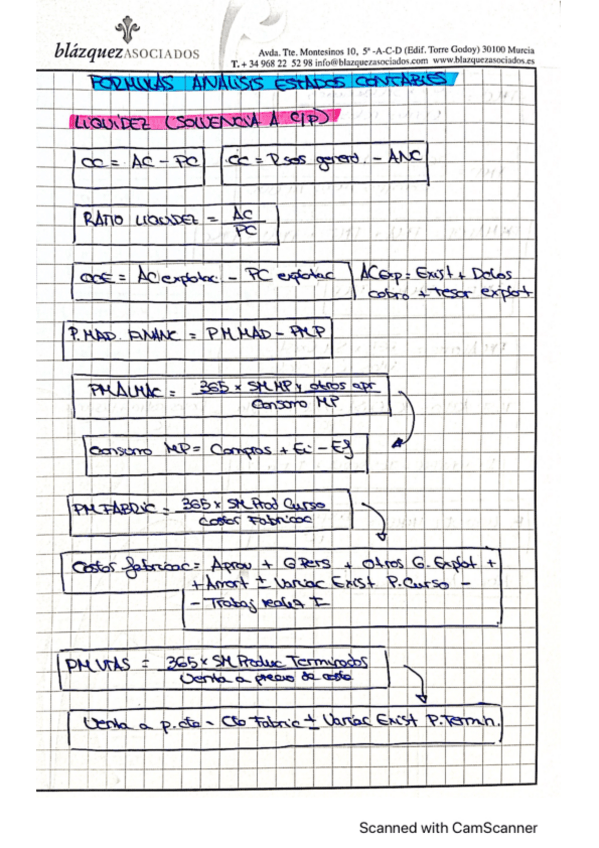 blázquezASOCIADOS
Avda. Tte. Montesinos 10, 5ª -A-C-D (Edif. Torre Godoy) 30100 Murcia
T. + 34 968 22 52 98 info@blazquezasociados.com www.blazquezasociados.es
FORMULAS ANÁLISIS ESTADOS CONTABLES
LIQUIDEZ (SOLVENCIA A C/P)
CC = AC - PC
CC = Rsos gerard. - ANC
RATIO LIQUIDEZ = AC
PC
CCE = AC explotac. - PC explotac
ACexp = Exist + Dchos
cobro + Tesor explot
P. MAD. FINANC = PM.MAD - PMP
PM ALMAC = 365 x SM MP y otros apr
Consumo MP
Consumo MP = Compras + Ei - Ef
PM FABRIC = 365 x SM Prod Curso
Costos Fabricac
Costos fabricac = Aprov + G Pers + Otros G. Explot +
+ Amort ± Variac Exist P. Curso -
- Trabaj realiz I
PM VTAS = 365 x SM Produc Terminados
Venta a precio de coste
Venta a p. cte = Cto Fabric ± Variac Exist P. Termin.
Scanned with CamScanner